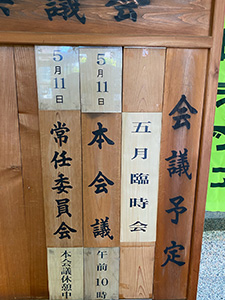 会議予定
五月臨時会
5月11日
本会議
午前10時
5月11日
常任委員会
本会議休憩中